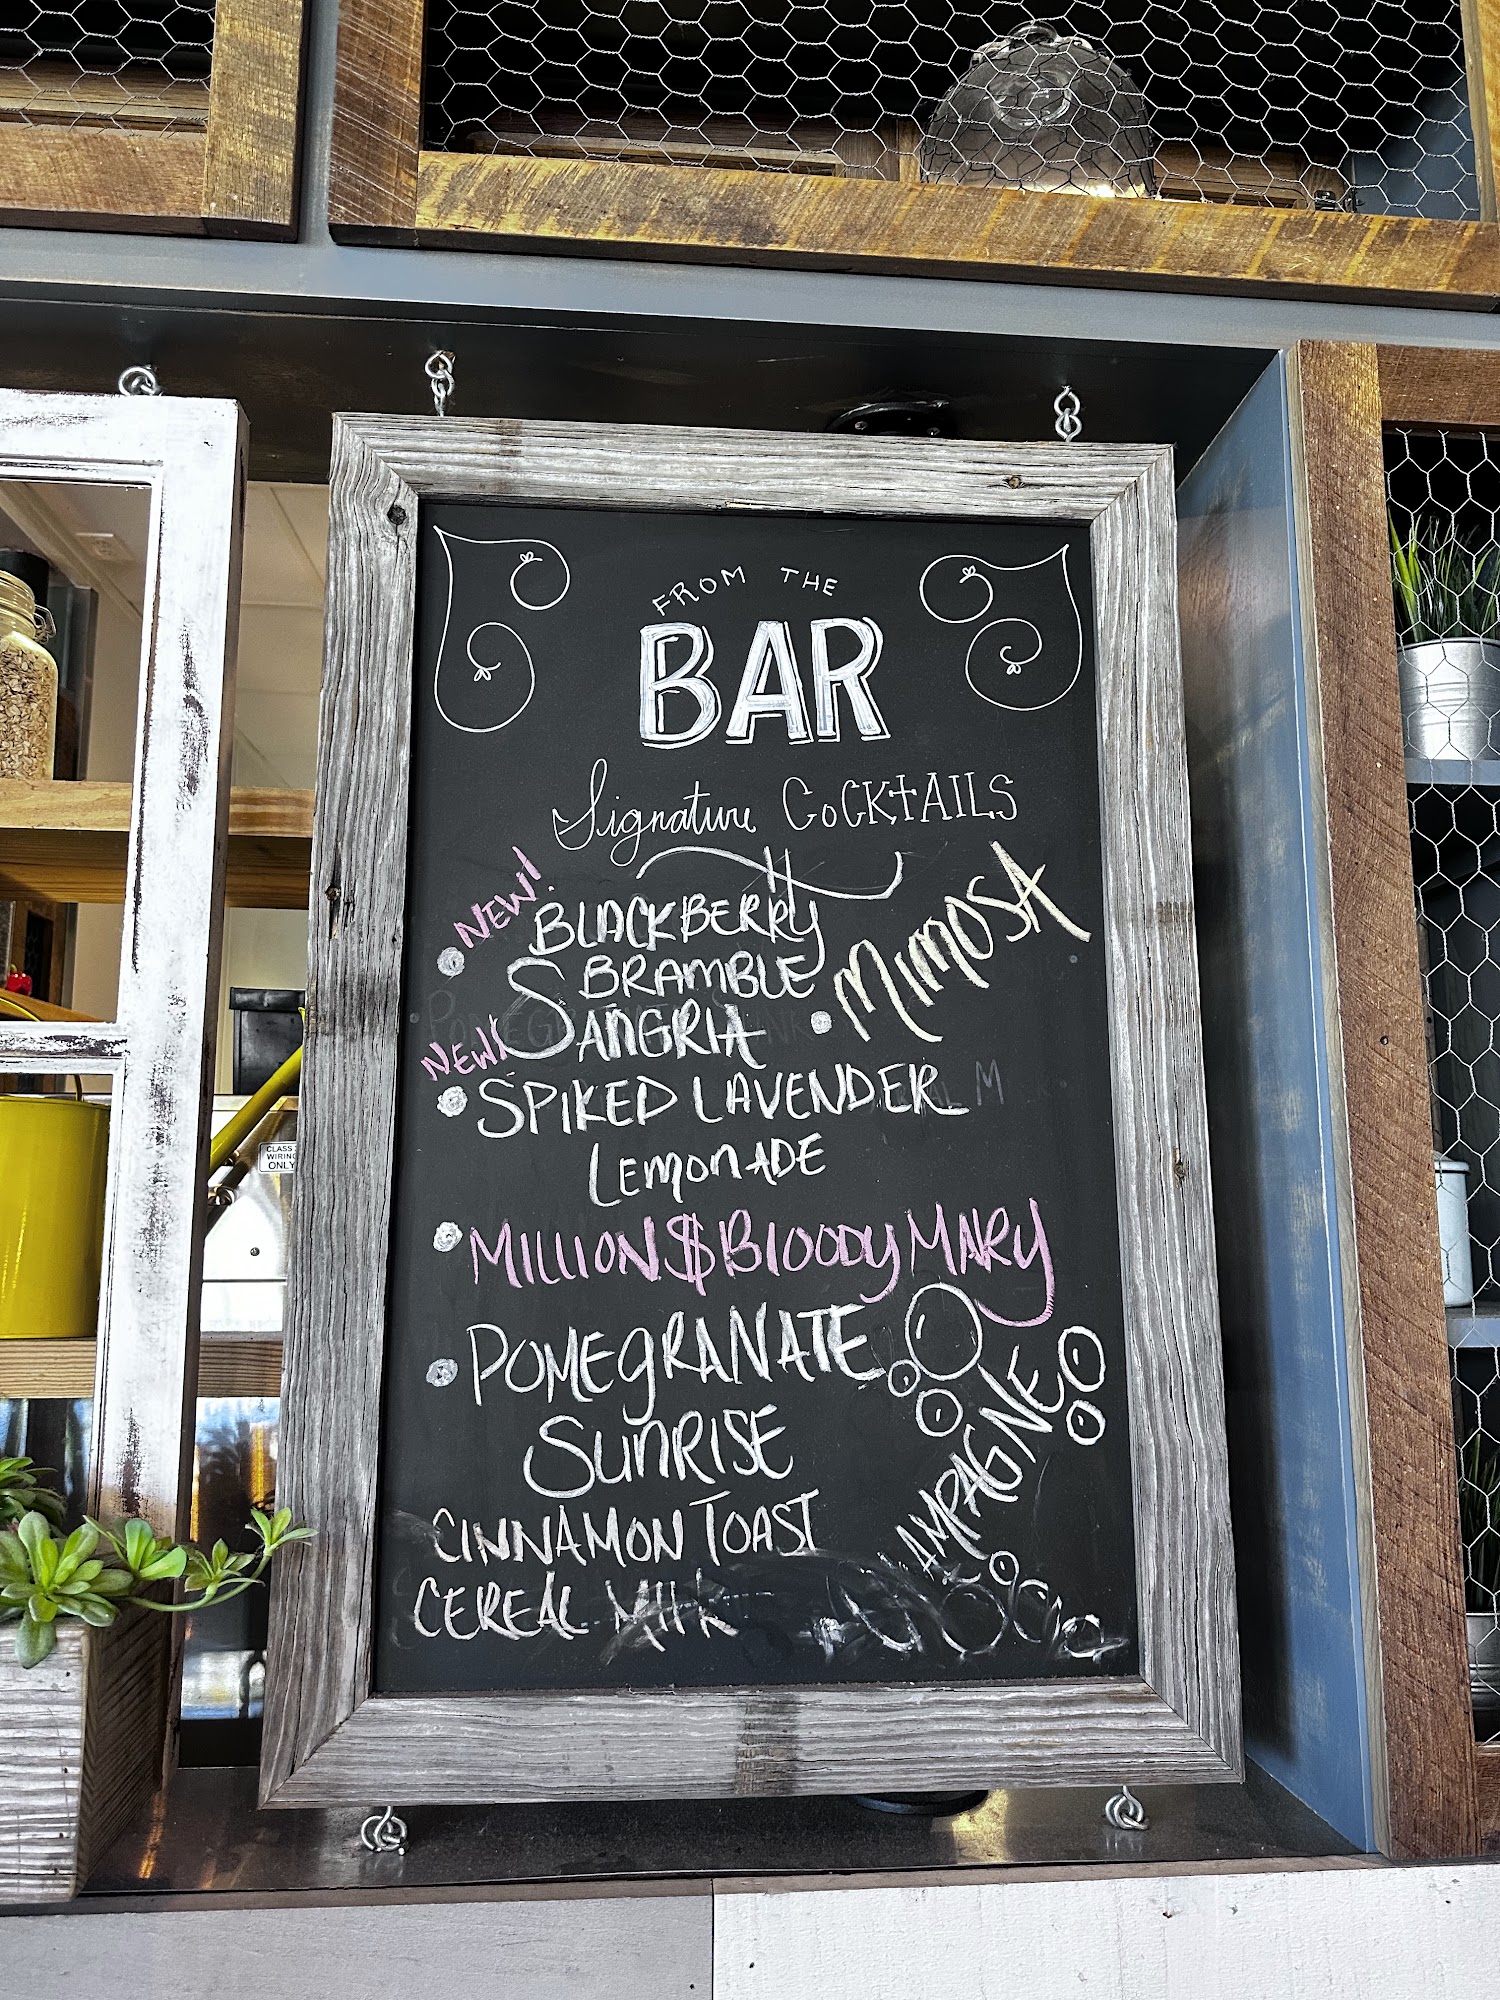 FROM THE
BAR
Signature COCKTAILS
NEW!
BLACKBERRY
BRAMBLE
SANGRIA
MIMOSA
NEW!
SPIKED LAVENDER
LEMONADE
MILLION $ BLOODY MARY
POMEGRANATE
SUNRISE
CINNAMON TOAST
CEREAL MILK
AMPAGNE
CLASS
WIRING
ONLY